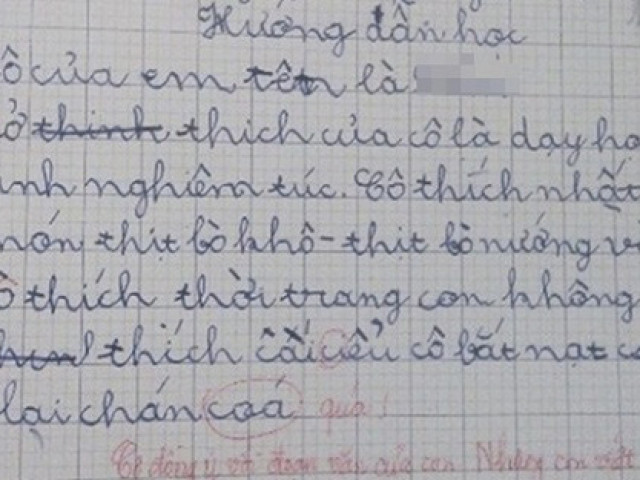 Hướng dẫn học
ô của em tên là
ở thinh thich của cô là dạy ho
inh nghiêm túc. Cô thích nhất
món thịt bò khô - thịt bò nướng v
ô thích thời trang con không
thích cái ciểu cô bắt nạt co
lại chán coá quá!
Cô đồng ý với đoạn văn của con Nhưng con viết